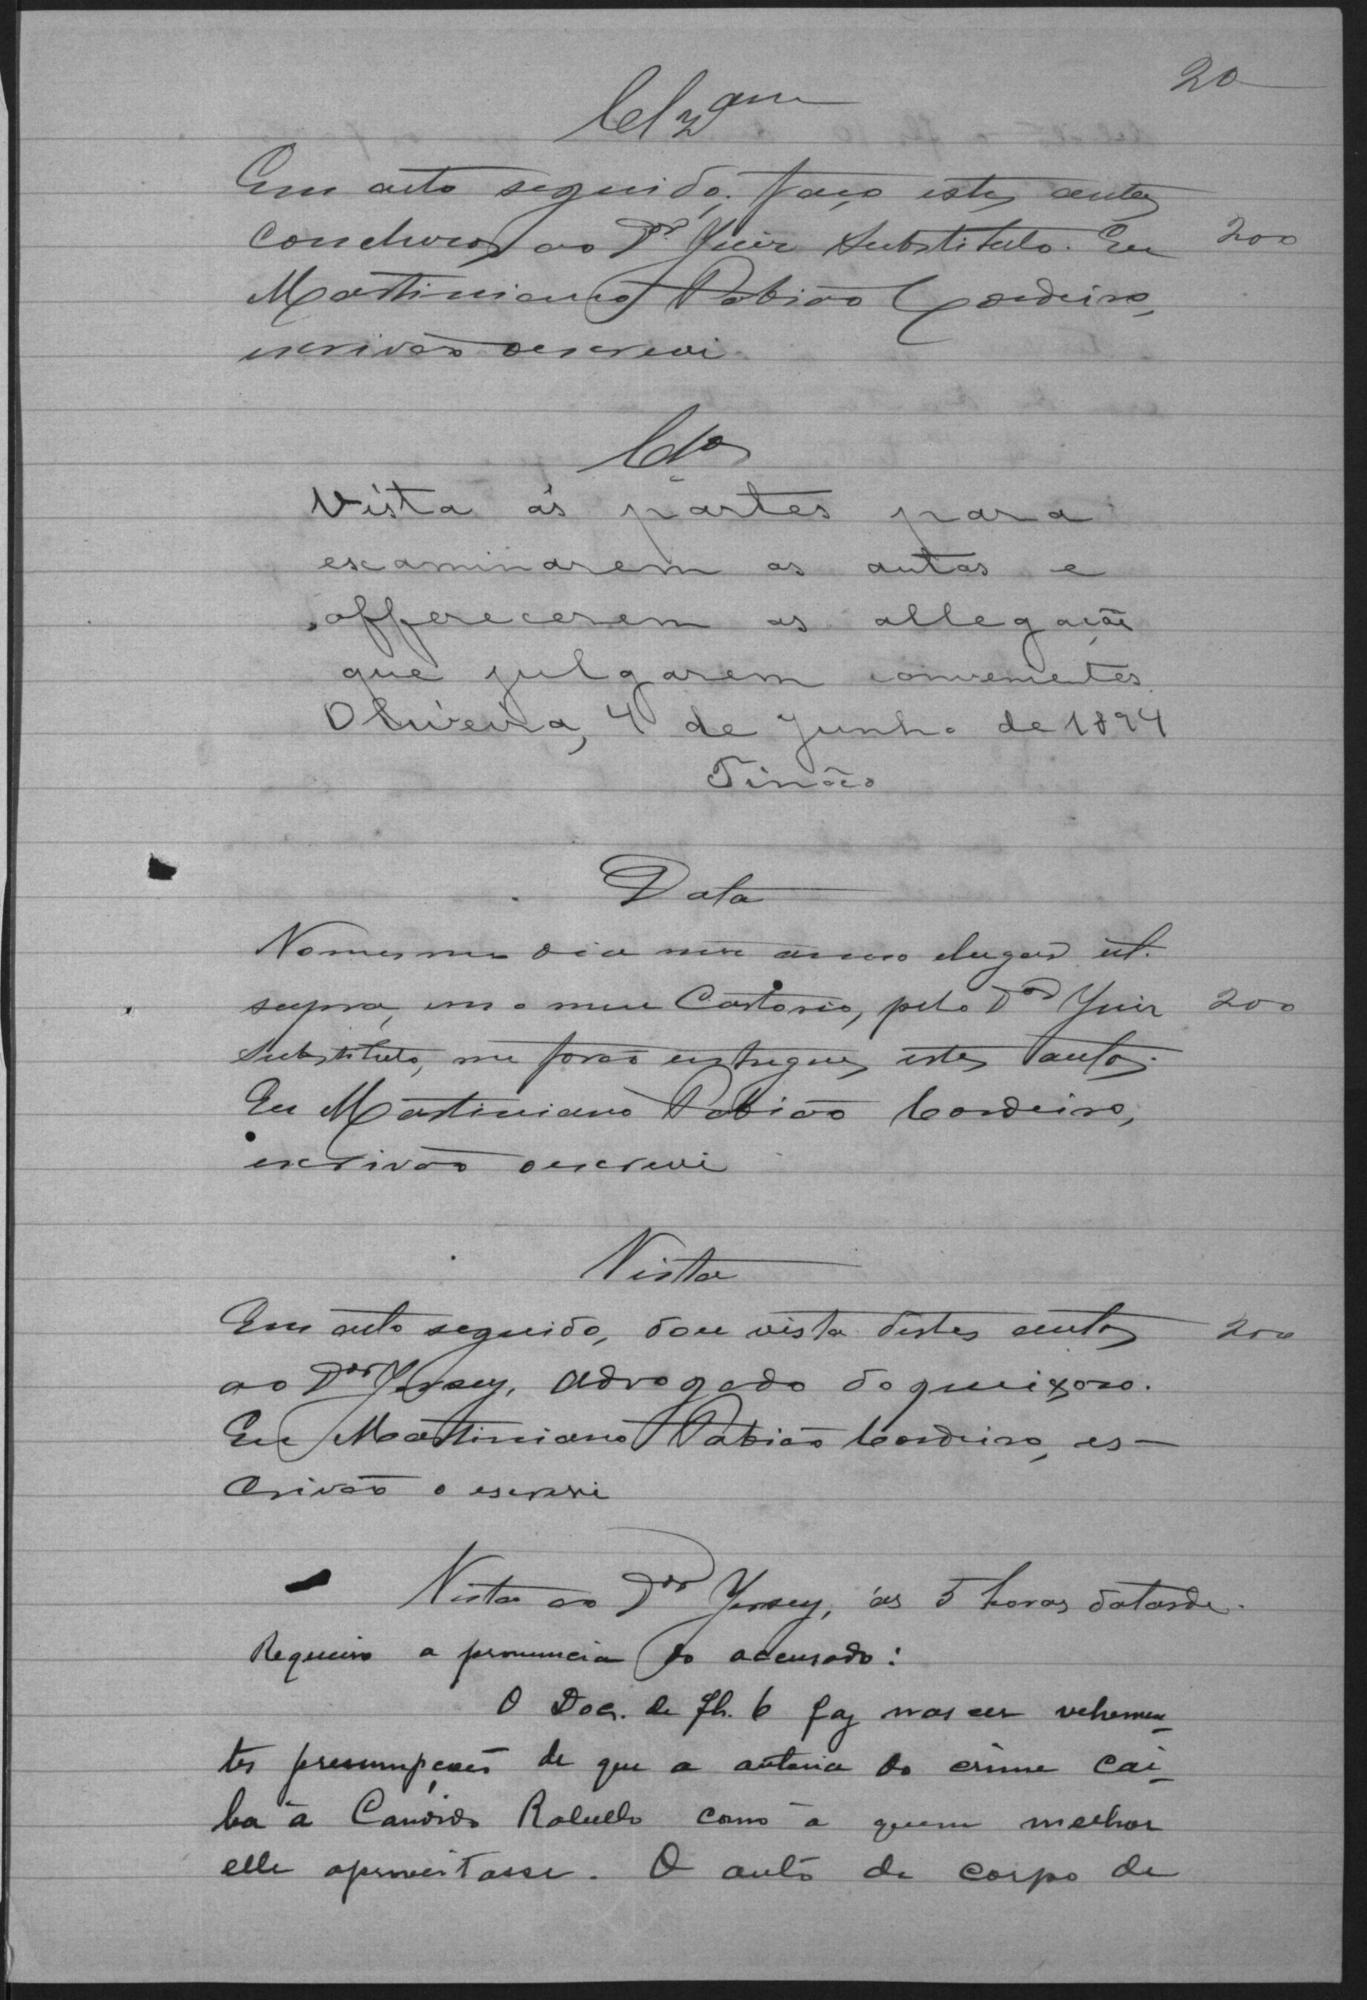 20
Clzam
Em acto seguido, faço estes autos
conclusos ao Dor. Juiz Substituto. Eu 200
Martiniano Pabião Cordeiro,
escrivão o escrevi.
Clos
Vista ás partes para
examinarem os autos e
offerecerem as allegações
que julgarem convenientes.
Oliveira, 4 de Junho de 1894
Data
No mesmo dia mez anno e lugar ut
supra, em o meu Cartorio, pelo Dor Juiz 200
Substituto, me forão entregues estes autos.
Eu Martiniano Pabião Cordeiro,
escrivão o escrevi
Vista
Em acto seguido, dou vista destes autos 200
ao Dor Jersey, advogado do queixoso.
Eu Martiniano Pabião Cordeiro, es-
crivão o escrevi
Vista ao Dor Jersey, ás 5 horas da tarde.
Requeiro a pronuncia do accusado:
O Doc. de fh. 6 faz nascer vehemen-
tes presumpções de que a autoria do crime cai-
ba à Candido Rabello como à quem melhor
elle aproveitasse. O auto de corpo de